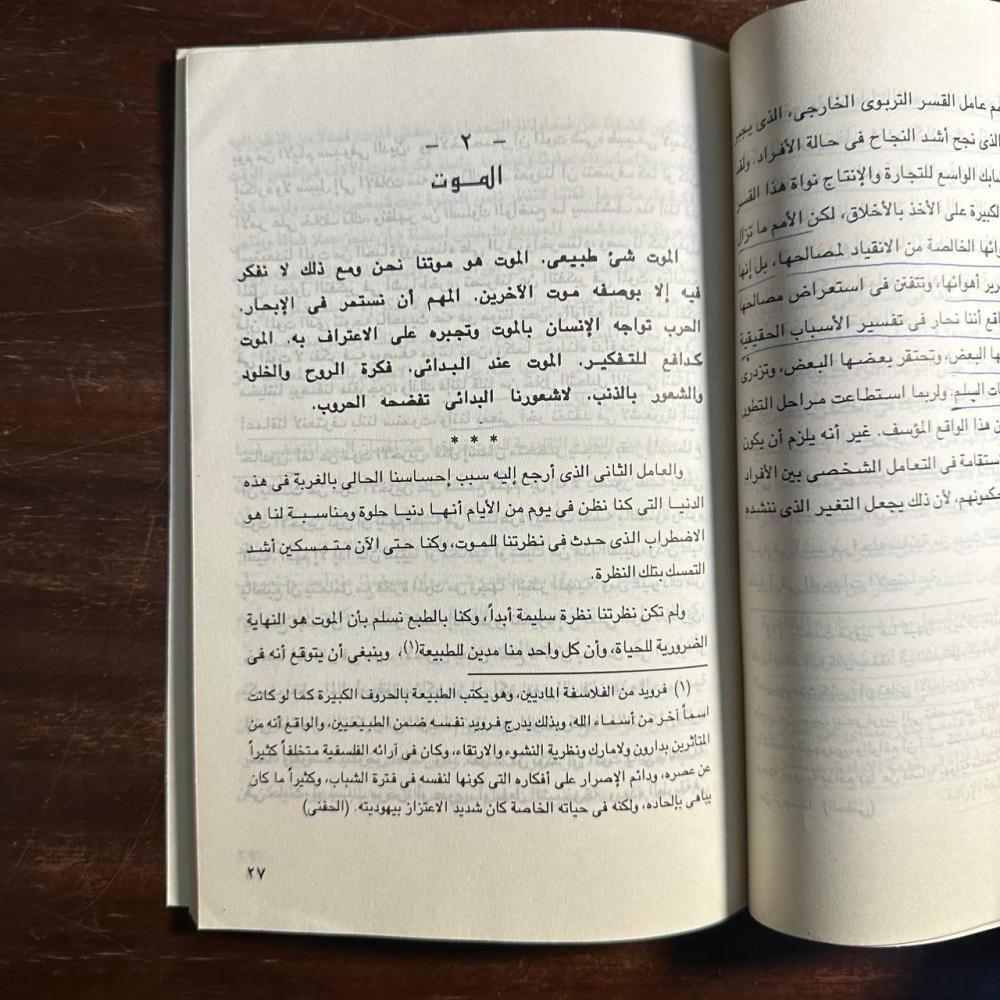 هم عامل القسر التربوى الخارجى، الذى يجبر
الذى نجح أشد النجاح فى حالة الأفراد. ولقد
شابك الواسع للتجارة والإنتاج نواة هذا القسر
الكبيرة على الأخذ بالأخلاق، لكن الأمم ما تزال
وائها الخالصة من الانقياد لمصالحها، بل إنها
رير أهوائها، وتتفنن فى استعراض مصالحها
اقع أننا نحار فى تفسير الأسباب الحقيقية
ها البعض، وتحتقر بعضها البعض، وتزدرى
ات السلم. ولربما استطاعت مراحل التطور
ن هذا الواقع المؤسف. غير أنه يلزم أن يكون
ستقامة فى التعامل الشخصى بين الأفراد
حكمونهم، لأن ذلك يجعل التغير الذى ننشده
- ٢ -
الموت
الموت شئ طبيعى. الموت هو موتنا نحن ومع ذلك لا نفكر
فيه إلا بوصفه موت الآخرين. المهم أن نستمر فى الإبحار.
الحرب تواجه الإنسان بالموت وتجبره على الاعتراف به. الموت
كدافع للتفكير. الموت عند البدائى. فكرة الروح والخلود
والشعور بالذنب. لاشعورنا البدائى تفضحه الحروب.
* * *
والعامل الثانى الذى أرجع إليه سبب إحساسنا الحالى بالغربة فى هذه
الدنيا التى كنا نظن فى يوم من الأيام أنها دنيا حلوة ومناسبة لنا هو
الاضطراب الذى حدث فى نظرتنا للموت، وكنا حتى الآن متمسكين أشد
التمسك بتلك النظرة.
ولم تكن نظرتنا نظرة سليمة أبداً، وكنا بالطبع نسلم بأن الموت هو النهاية
الضرورية للحياة، وأن كل واحد منا مدين للطبيعة(١)، وينبغى أن يتوقع أنه فى
(١) فرويد من الفلاسفة الماديين، وهو يكتب الطبيعة بالحروف الكبيرة كما لو كانت
اسماً آخر من أسماء الله، وبذلك يدرج فرويد نفسه ضمن الطبيعيين، والواقع أنه من
المتأثرين بدارون ولامارك ونظرية النشوء والارتقاء، وكان فى آرائه الفلسفية متخلفاً كثيراً
عن عصره، ودائم الإصرار على أفكاره التى كونها لنفسه فى فترة الشباب، وكثيراً ما كان
يباهى بإلحاده، ولكنه فى حياته الخاصة كان شديد الاعتزاز بيهوديته. (الحفنى)
٢٧